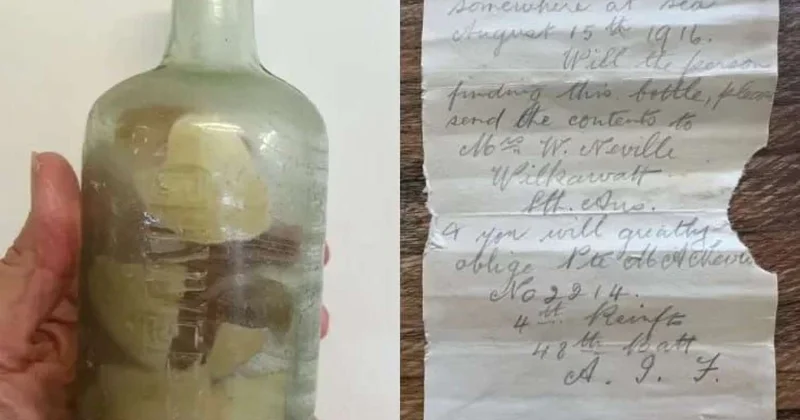 somewhere at sea
August 15th 1916.
Will the person
finding this bottle, please
send the contents to
Mrs W. Neville
Wilkawatt
Sth. Aus.
& you will greatly
oblige Pte M A Nevil
No 2214.
4th Reinfts
48th Batt
A. I. F.